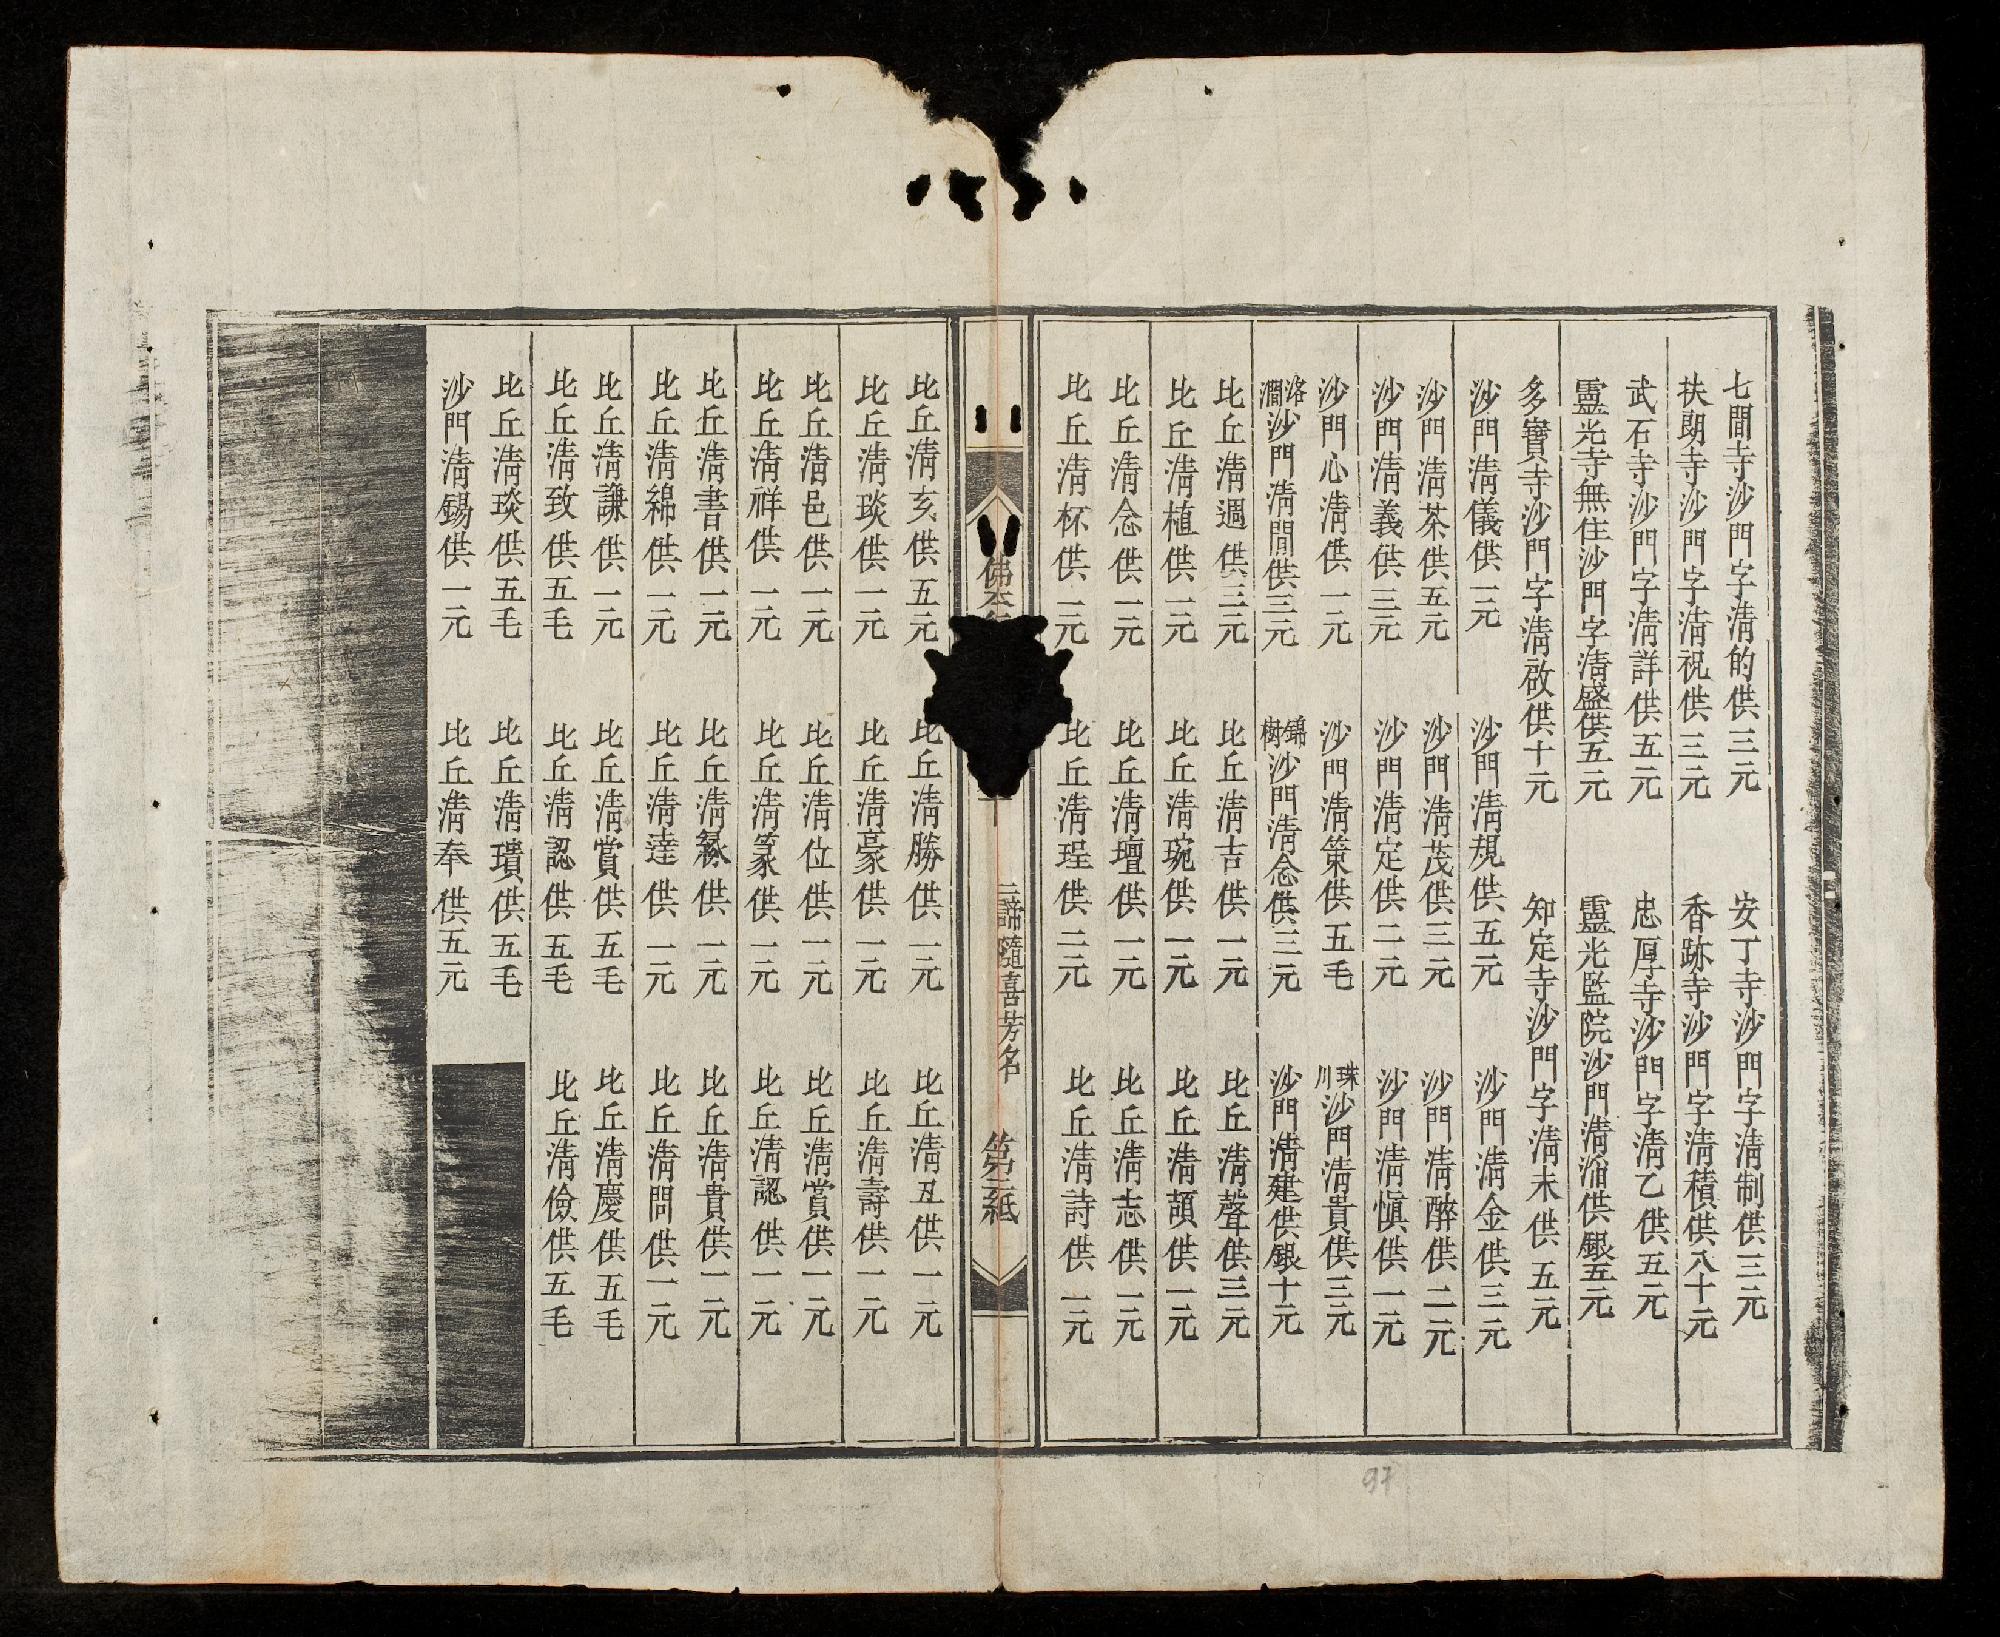 七間寺沙門字淸的供三元
安丁寺沙門字淸制供三元
扶朗寺沙門字淸祝供三元
香跡寺沙門字淸積供八十元
武石寺沙門字淸詳供五元
忠厚寺沙門字淸乙供五元
靈光寺無住沙門字淸盛供五元
靈光監院沙門淸㴠供銀五元
多寶寺沙門字淸啟供十元
知定寺沙門字淸未供五元
沙門淸儀供一元
沙門淸規供五元
沙門淸金供三元
沙門淸茶供五元
沙門淸茂供三元
沙門淸醉供二元
沙門淸義供三元
沙門淸定供二元
沙門淸愼供一元
沙門心淸供一元
沙門淸策供五毛
珠川沙門淸貴供三元
洛澗沙門淸間供三元
錦樹沙門淸念供三元
沙門淸建供銀十元
比丘淸週供三元
比丘淸吉供一元
比丘淸聲供三元
比丘淸植供一元
比丘淸琬供一元
比丘淸頡供一元
比丘淸念供一元
比丘淸壇供一元
比丘淸志供一元
比丘淸杯供一元
比丘淸珵供二元
比丘淸詩供一元
佛
三諦隨喜芳名
第三紙
比丘淸亥供五元
比丘淸勝供一元
比丘淸丑供一元
比丘淸琰供一元
比丘淸豪供一元
比丘淸壽供一元
比丘淸邑供一元
比丘淸位供一元
比丘淸賞供一元
比丘淸祥供一元
比丘淸篆供一元
比丘淸認供一元
比丘淸書供一元
比丘淸緣供一元
比丘淸貴供一元
比丘淸綿供一元
比丘淸達供一元
比丘淸問供一元
比丘淸謙供一元
比丘淸賞供五毛
比丘淸慶供五毛
比丘淸致供五毛
比丘淸認供五毛
比丘淸儉供五毛
比丘淸琰供五毛
比丘淸璝供五毛
沙門淸錫供一元
比丘淸奉供五元
97